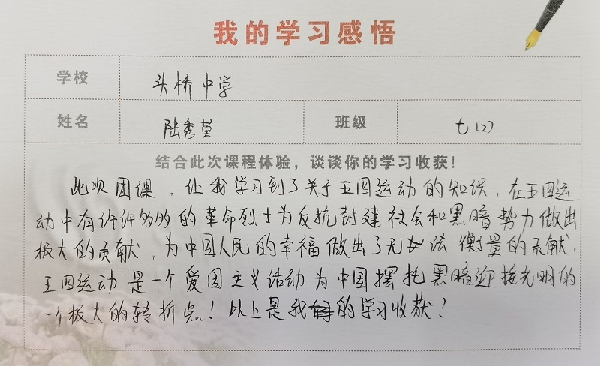 我的学习感悟
学校 头桥中学
姓名 陆秀堇 班级 七(2)
结合此次课程体验，谈谈你的学习收获！
此次团课，让我学习到了关于五四运动的知识，在五四运
动中有许许多多的革命烈士为反抗封建社会和黑暗势力做出
极大的贡献，为中国人民的幸福做出了无法衡量的贡献，
五四运动是一个爱国主义活动为中国摆托黑暗迎接光明的
一个极大的转折点！以上是我的学习收获！